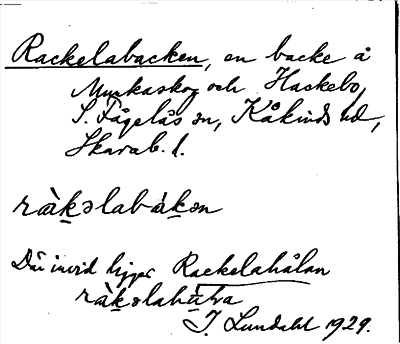 Rackelabacken, en backe å
Munkaskog och Haskebo,
S. Fågelås sn, Kåkinds hd,
Skarab. l.
ràk̲əlabák̲ən
Där invid ligger Rackelahålan
ràk̲əlah
I. Lundahl 1929.